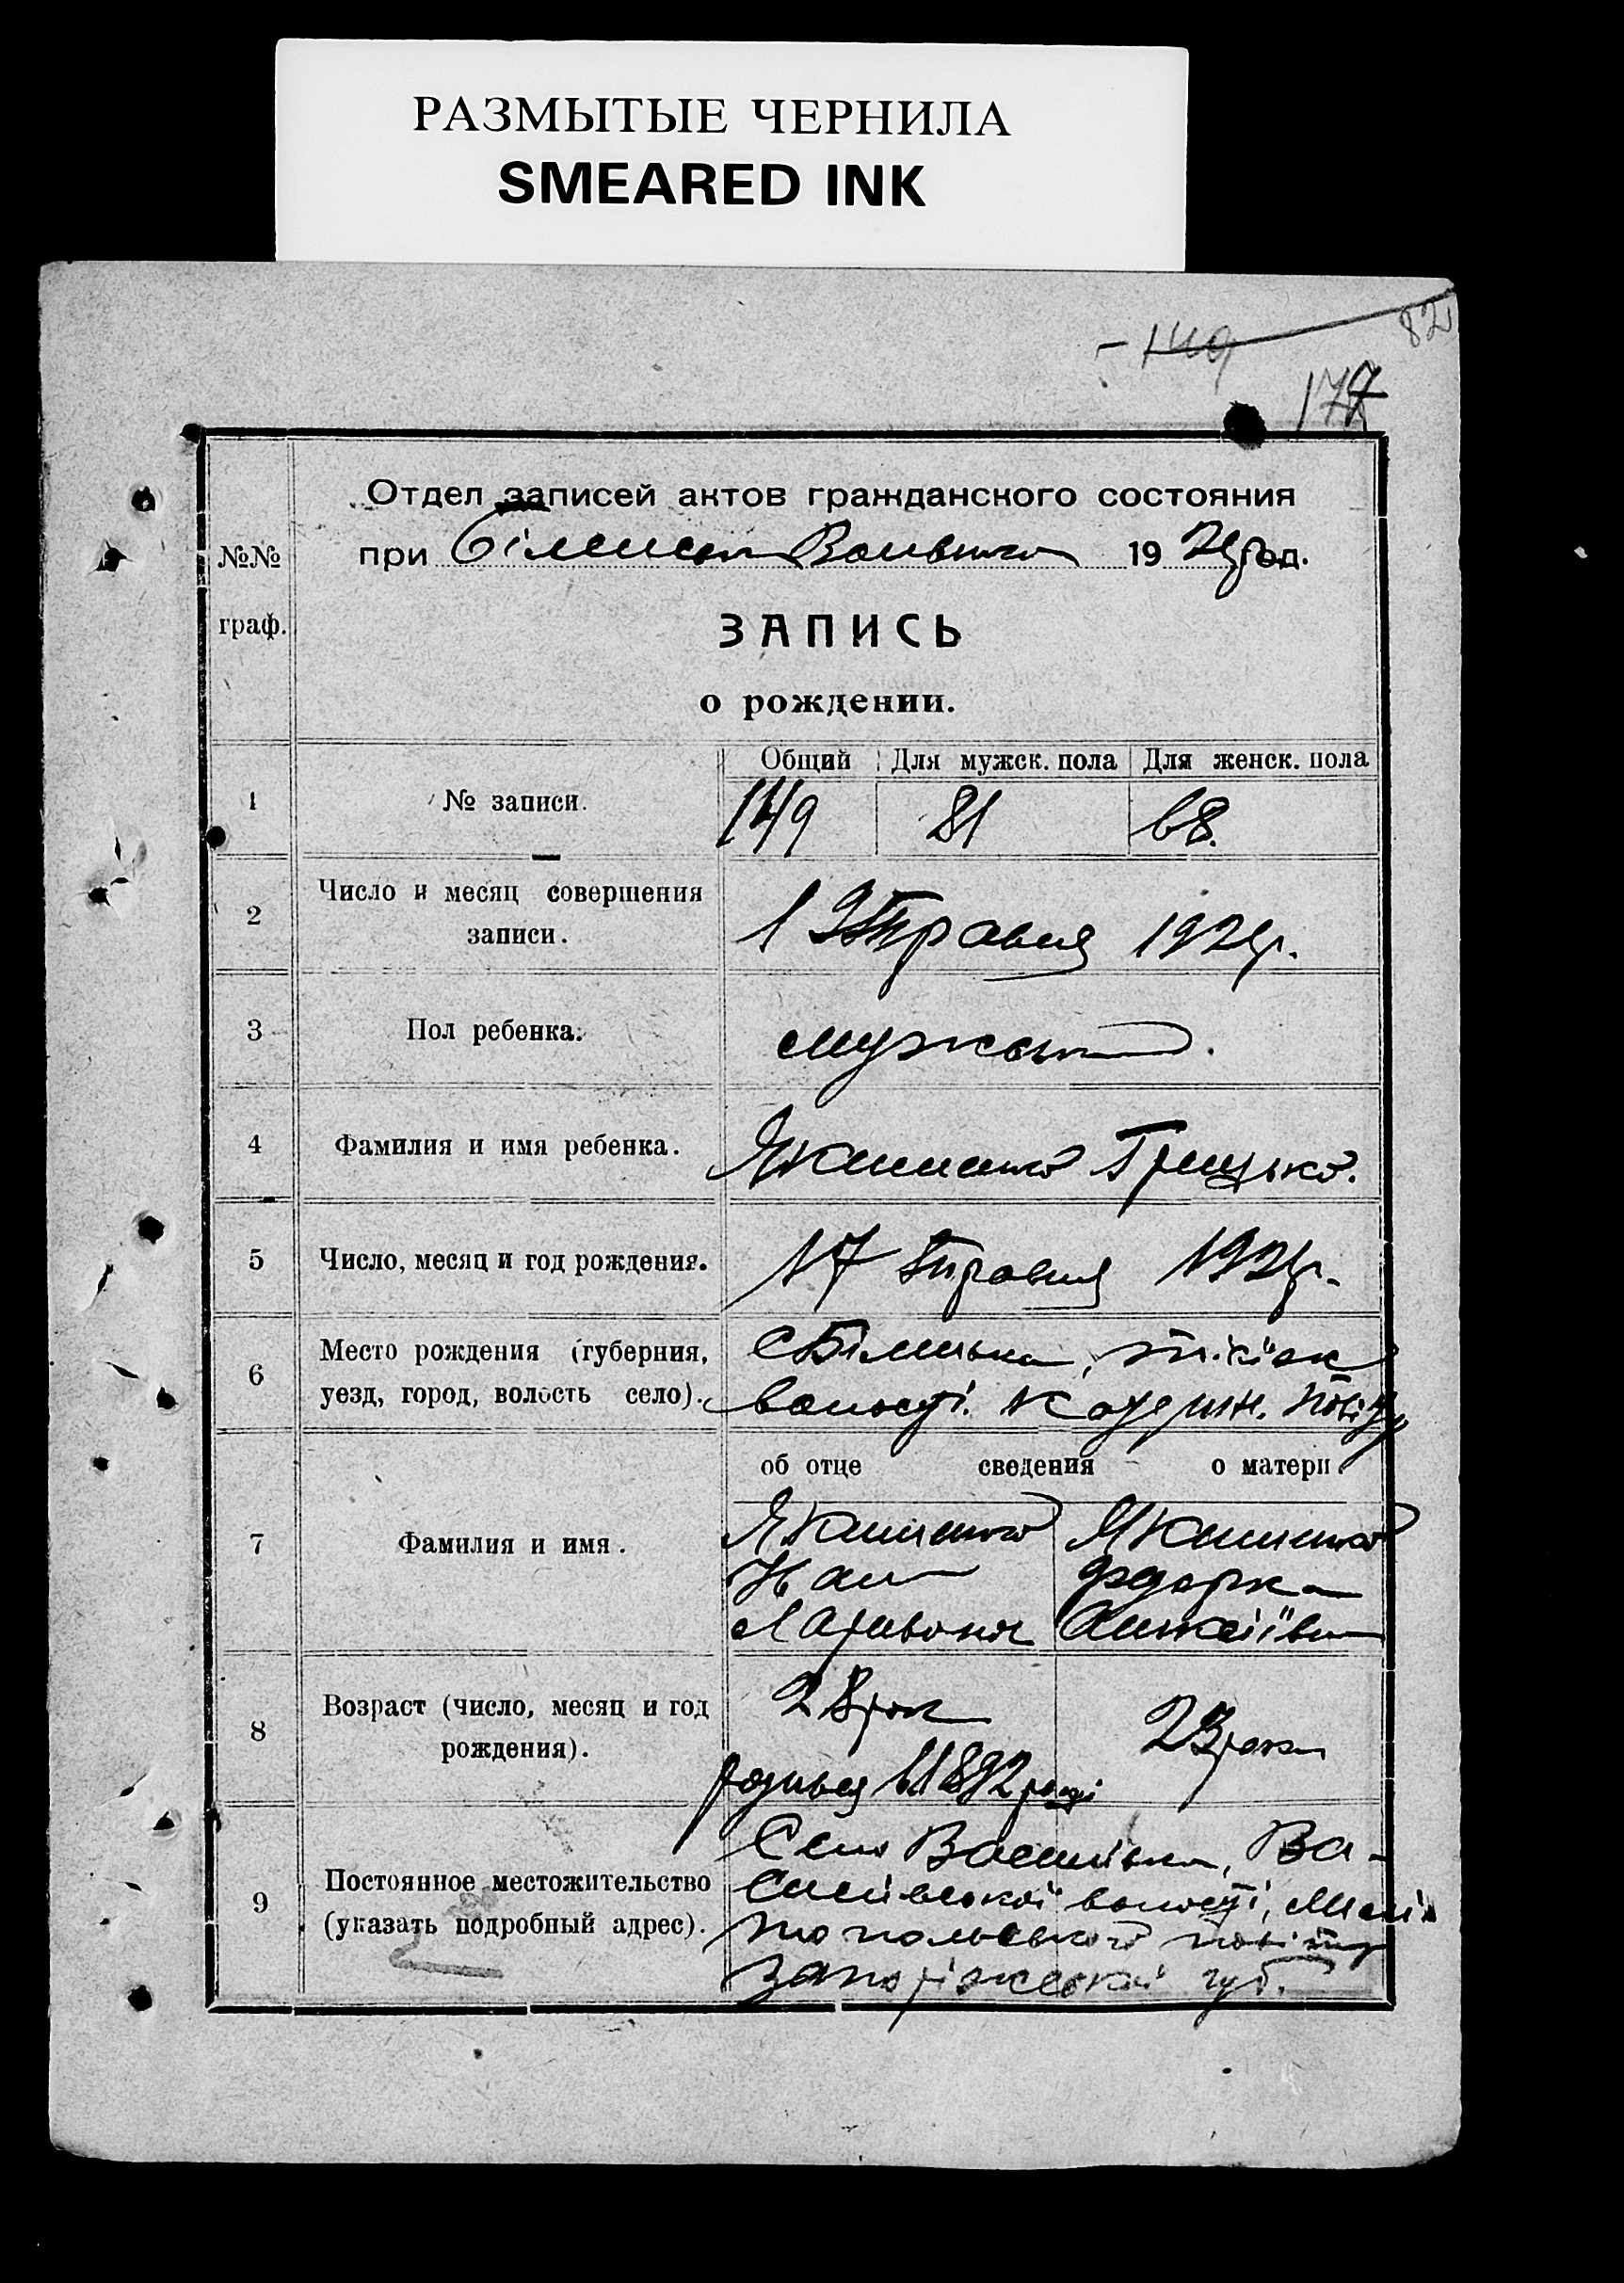 РАЗМЫТЫЕ ЧЕРНИЛА
SMEARED INK
149
82
177
Отдел записей актов гражданского состояния
№№ граф.
при 19 год.
ЗАПИСЬ
о рождении.
Общий Для мужск. пола Для женск. пола
1 № записи. 149 81 68.
2 Число и месяц совершения
записи.
Травня 192
3 Пол ребенка.
4 Фамилия и имя ребенка. Грицько.
5 Число, месяц и год рождения. 17 Травня 192
6 Место рождения (губерния,
уезд, город, волость село).
волості. Катерин. повіту
об отце сведения о матери
7 Фамилия и имя.
Федорка
8 Возраст (число, месяц и год
рождения).
28 рок 23 роки
родився 1892 році
9 Постоянное местожительство
(указать подробный адрес).
Село Василівка, Ва-
силівської волості, Мелі-
топольського повіту
Запоріжської губ.